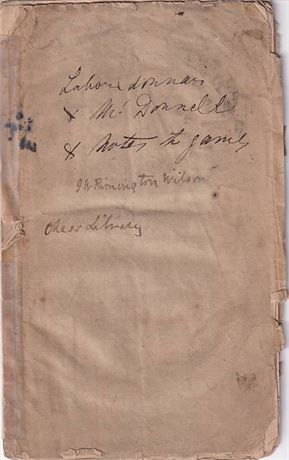 Labourdonnais
& McDonnell
& Notes to games
J W Rimington Wilson
Chess Library